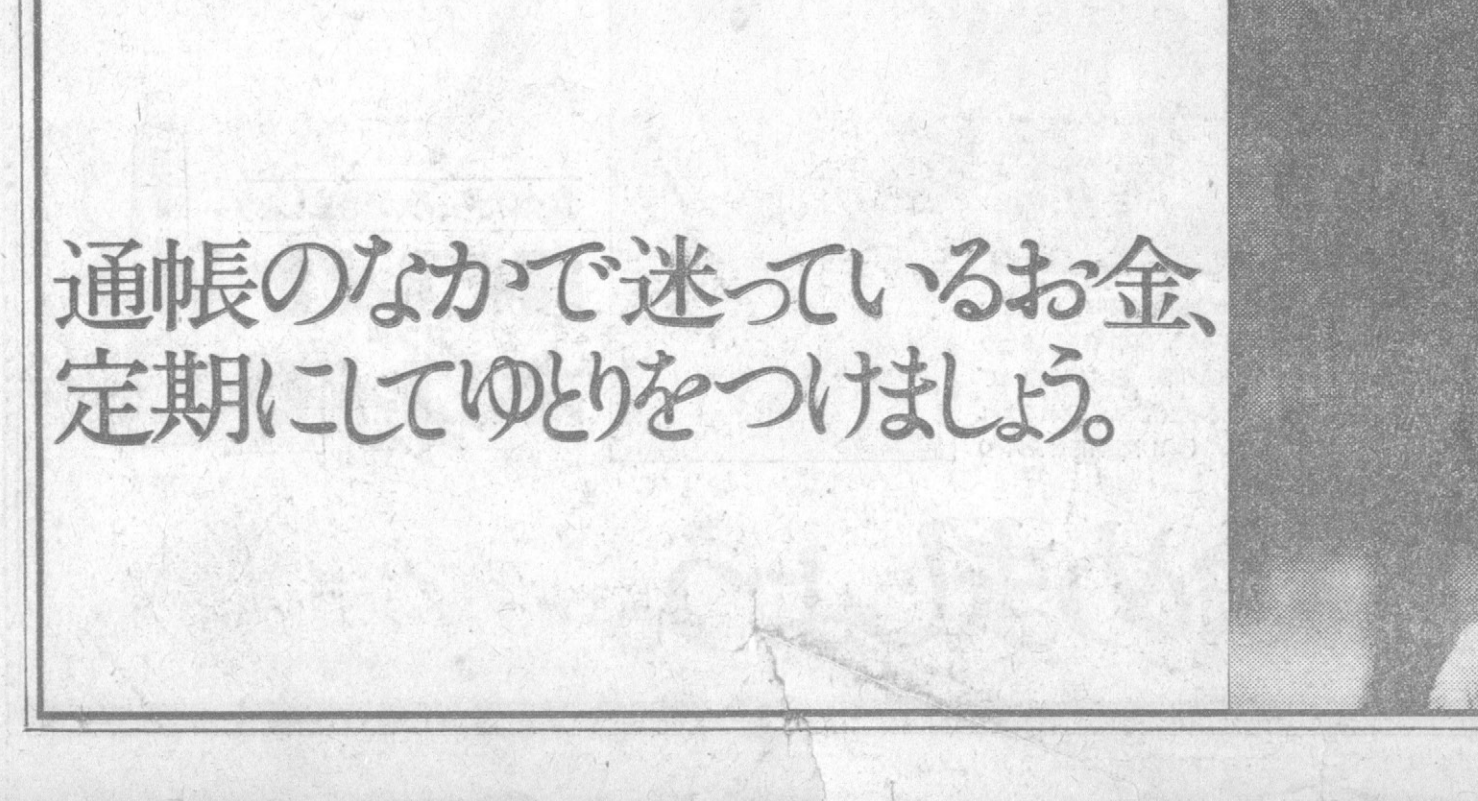 通帳のなかで迷っているお金、
定期にしてゆとりをつけましょう。